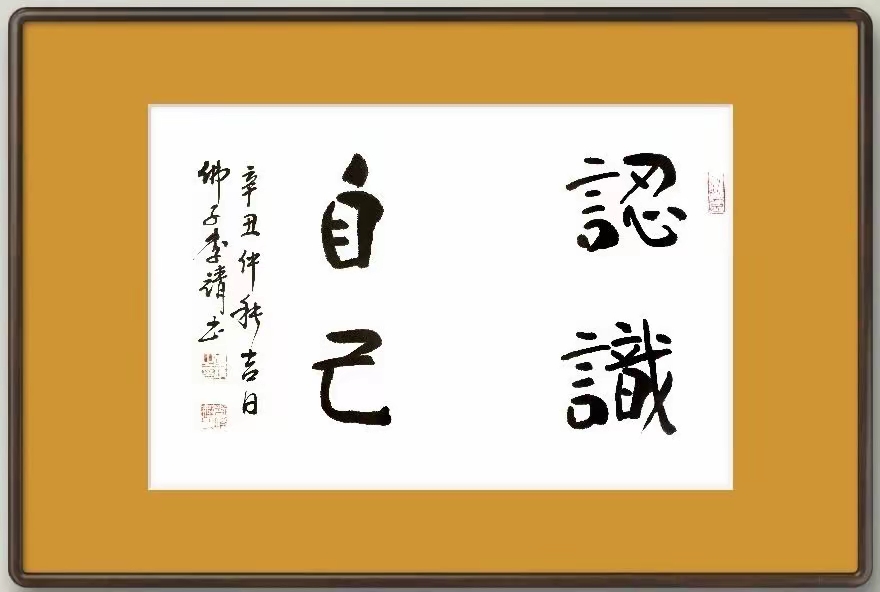 認識
自己
辛丑仲秋吉日
佛子李靖书